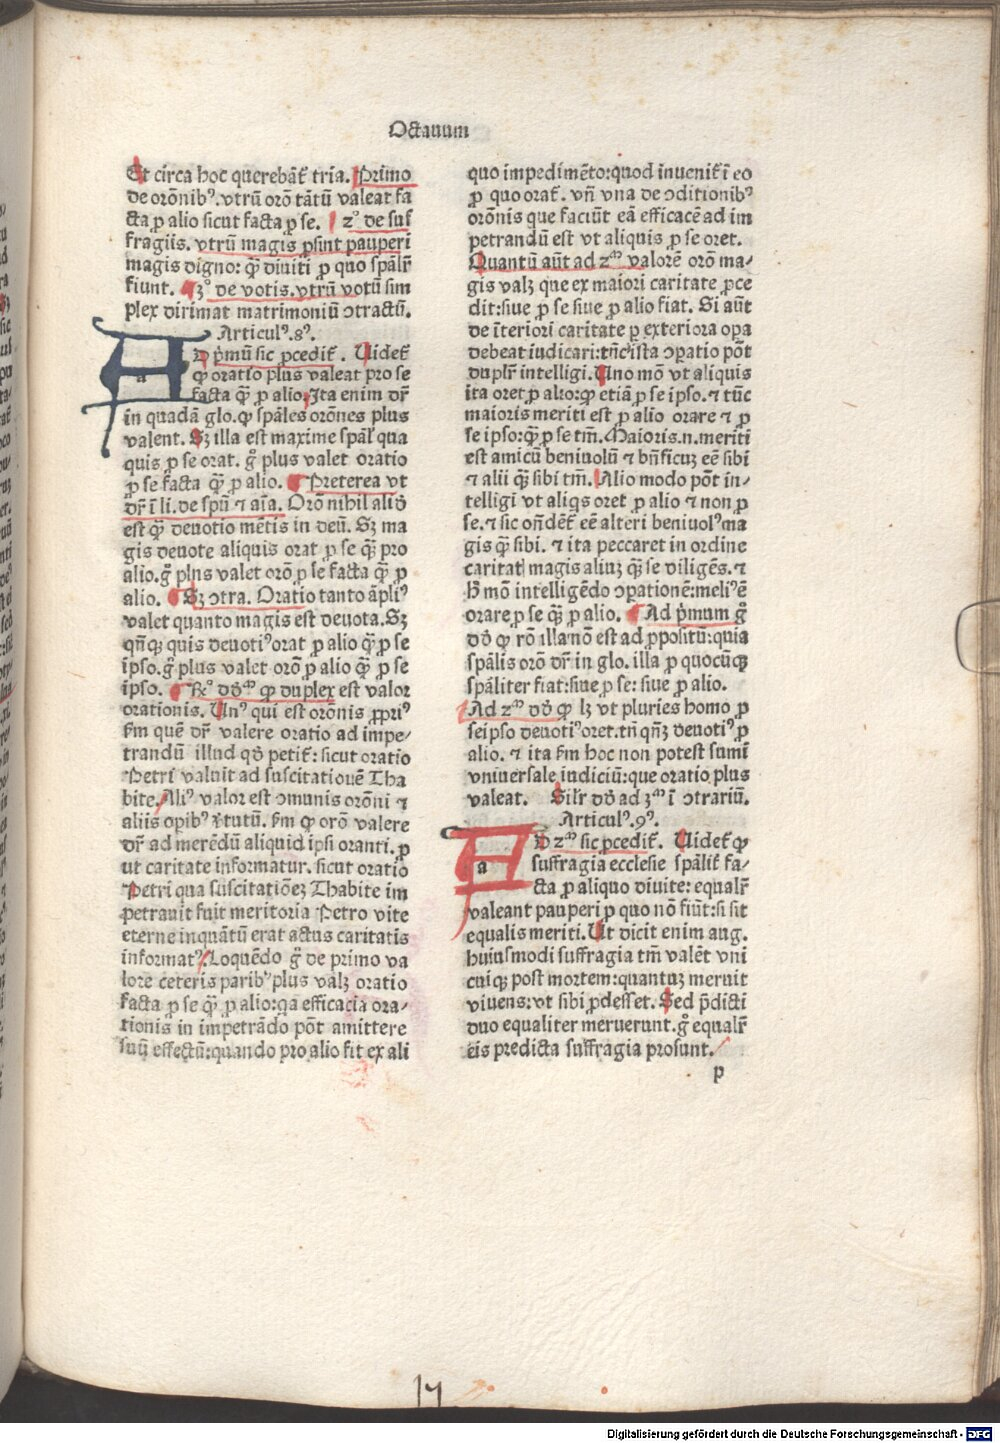 Octauum
Et circa hoc querebat᷑ tria. Primo
de orōnibꝰ. vtrū orō tātū valeat fa
cta ꝑ alio sicut facta ꝑ se. zº de suf
fragiis. vtrū magis ꝓsint pauperi
magis digno: q̄ȝ diuiti ꝓ quo spālr̄
fiunt. ȝº de votis. vtrū votū sim
plex dirimat matrimoniū ɔtractū.
Articulꝰ.8ꝰ.
AD p̄mū sic ꝓcedit᷑. Uidet᷑
a
ꝙ oratio plus valeat pro se
facta q̄ȝ ꝓ alio. Ita enim dr̄
in quadā glo. ꝙ spāles orōnes plus
valent. Sȝ illa est maxime spāl' qua
quis ꝓ se orat. g̊ plus valet oratio
ꝓ se facta q̄ȝ ꝓ alio. Preterea vt
dr̄ ī li. de spū ⁊ aīa. Orō nihil aliđ
est q̄ȝ deuotio mētis in deū. Sȝ ma
gis deuote aliquis orat ꝓ se q̄ȝ pro
alio. g̊ plus valet orō ꝓ se facta q̄ȝ ꝓ
alio. Sȝ ɔtra. Oratio tanto āpliꝰ
valet quanto magis est deuota. Sȝ
qn̄qȝ quis deuotiꝰ orat ꝓ alio q̄ȝ ꝓ se
ipso. g̊ plus valet orō ꝓ alio q̄ȝ ꝓ se
ipso. Rº dōm ꝙ duplex est valor
orationis. Unꝰ qui est orōnis ꝓpriꝰ
ẜm quē dr̄ valere oratio ad impe-
trandū illud qđ petit᷑: sicut oratio
Petri valuit ad suscitationē Tha
bite. Aliꝰ valor est ɔmunis orōni ⁊
aliis oꝑibꝰ v̄tutū. ẜm ꝙ orō valere
dr̄ ad merēdū aliquid ipsi oranti. ꝓ
ut caritate informatur. sicut oratio
Petri qua suscitationeȝ Thabite im
petrauit fuit meritoria Petro vite
eterne inquātū erat actus caritatis
informatꝰ. Loquēdo g̊ de primo va
lore ceteris paribꝰ plus valȝ oratio
facta ꝓ se q̄ȝ ꝓ alio: qa efficacia ora-
tionis in impetrādo pōt amittere
suū effectū: quando pro alio fit ex ali
quo impedimēto: quod inuenit᷑ ī eo
ꝓ quo orat᷑. vn̄ vna de ɔditionibꝰ
orōnis que faciūt eā efficacē ad im
petrandū est vt aliquis ꝓ se oret.
Quantū aūt ad zm valorē orō ma-
gis valȝ que ex maiori caritate ꝓce
dit: siue ꝓ se siue ꝓ alio fiat. Si aūt
de īteriori caritate ꝑ exteriora oꝑa
debeat iudicari: tūc ista ɔꝑatio pōt
duplr̄ intelligi. Uno mō vt aliquis
ita oret ꝓ alio: ꝙ etiā ꝓ se ipso. ⁊ tūc
maioris meriti est ꝓ alio orare ⁊ ꝓ
se ipso: q̄ȝ ꝓ se tm̄. Maioris .n. meriti
est amicū beniuolū ⁊ bn̄ficuȝ eē sibi
⁊ alii q̄ȝ sibi tm̄. Alio modo pōt in-
telligi vt aliqs oret ꝓ alio ⁊ non ꝓ
se. ⁊ sic on̄det᷑ eē alteri beniuolꝰ ma
gis q̄ȝ sibi. ⁊ ita peccaret in ordine
caritat᷑ magis aliuȝ q̄ȝ se diligēs. ⁊
h̄ mō intelligēdo ɔꝑationē: meliꝰ ē
orare ꝓ se q̄ȝ ꝓ alio. Ad p̄mum g̊
dō ꝙ rō illa nō est ad ꝓpositū: quia
spālis orō dr̄ in glo. illa ꝓ quocūqȝ
spāliter fiat: siue ꝓ se: siue ꝓ alio.
Ad zm dō ꝙ lȝ vt pluries homo ꝓ
seipso deuotiꝰ oret. tn̄ qn̄qȝ deuotiꝰ ꝓ
alio. ⁊ ita ẜm hoc non potest sumi
vniuersale iudiciū: que oratio plus
valeat. Silr̄ dō ad ȝm ī ɔtrariū.
Articulꝰ.9ꝰ.
AD zm sic ꝓcedit᷑. Uidet᷑ ꝙ
a
suffragia ecclesie spālit᷑ fa-
cta ꝓ aliquo diuite: equalr̄
valeant pauperi ꝓ quo nō fiūt: si sit
equalis meriti. Ut dicit enim aug.
huiusmodi suffragia tm̄ valēt vni
cuiqȝ post mortem: quantuȝ meruit
viuens: vt sibi ꝓdesset. Sed p̄dicti
duo equaliter meruerunt. g̊ equalr̄
eis predicta suffragia prosunt.
p
17
Digitalisierung gefördert durch die Deutsche Forschungsgemeinschaft - DFG